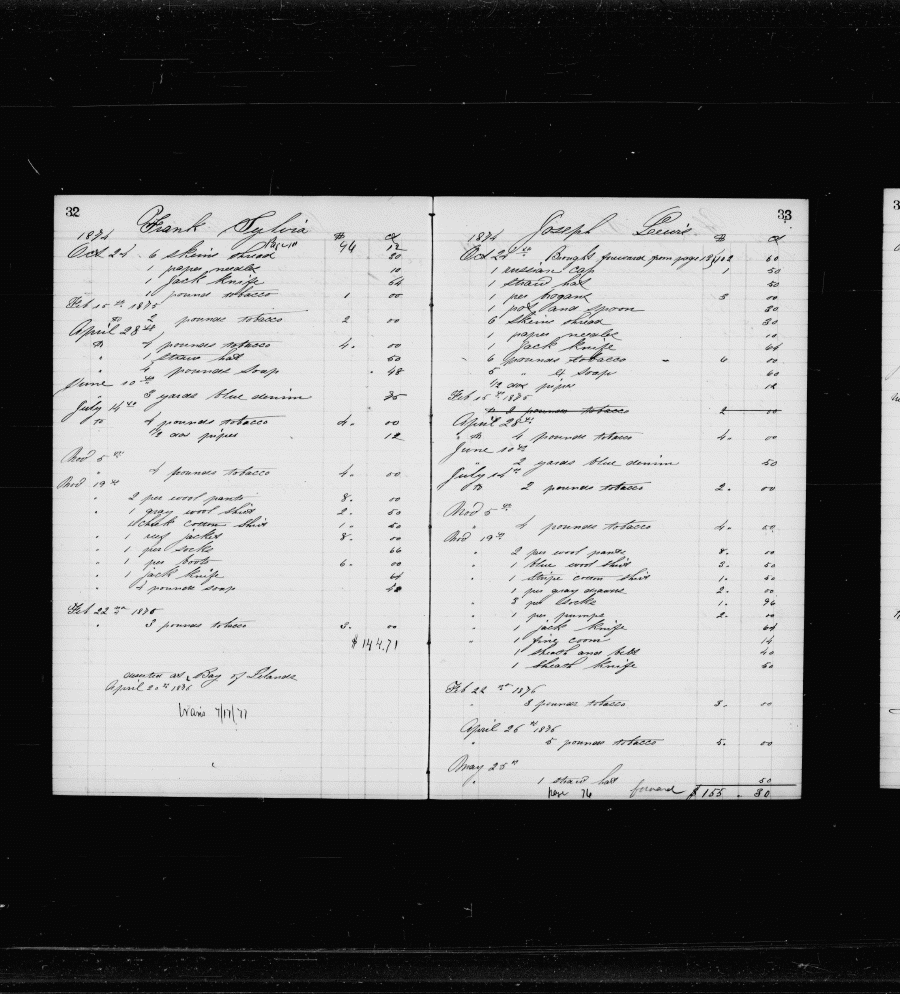 32
Frank Sylvia
1874 $ ct
Oct 24 94 12
6 skeins thread 20
1 paper needles 10
1 jack knife 64
1 pounds tobacco 1 00
Feb 15th 1875
To 2 pounds tobacco 2 00
April 28th
To 4 pounds tobacco 4. 00
" 1 straw hat 50
" 4 pounds soap 48
June 10th
" 3 yards blue denim 75
July 14th
To 4 pounds tobacco 4. 00
1/2 doz pipes 12
Nov 5th
" 4 pounds tobacco 4. 00
Nov 19th
" 2 per wool pants 8. 00
" 1 gray wool shirt 2. 50
1 check cotton shirt 1. 50
" 1 reef jacket 8. 00
" 1 per socks 66
" 1 per boots 6. 00
" 1 jack knife 64
" 4 pounds soap 48
Feb 22nd 1876
" 3 pounds tobacco 3. 00
$ 144.71
deserted at Bay of Islands
April 20th 1876
33
Joseph Lewis
1874 $ ct
Oct 24th Brought forward from page 102 60
1 russian cap 1 50
1 straw hat 50
1 per brogans 3 00
1 pot and spoon 30
6 skeins thread 30
1 paper needles 10
1 jack knife 64
" 6 pounds tobacco 6 00
5 " soap 60
1/2 doz pipes 12
Feb 15th 1875
To 2 pounds tobacco 2 00
April 28th
" To 4 pounds tobacco 4. 00
June 10th
" 2 yards blue denim 50
July 14th
To 2 pounds tobacco 2. 00
Nov 5th
" 4 pounds tobacco 4.
Nov 19th
" 2 per wool pants 8. 00
" 1 blue wool shirt 3. 50
" 1 stripe cotton shirt 1. 50
1 per gray drawers 2. 00
" 3 per socks 1. 96
" 1 per pumps 2. 00
" 1 jack knife 64
" 1 fine comb 14
1 sheath and belt 40
1 sheath knife 50
Feb 22nd 1876
" 3 pounds tobacco 3. 00
April 26th 1876
" 5 pounds tobacco 5. 00
May 25th
" 1 straw hat 50
page 76 forward $ 155 . 80